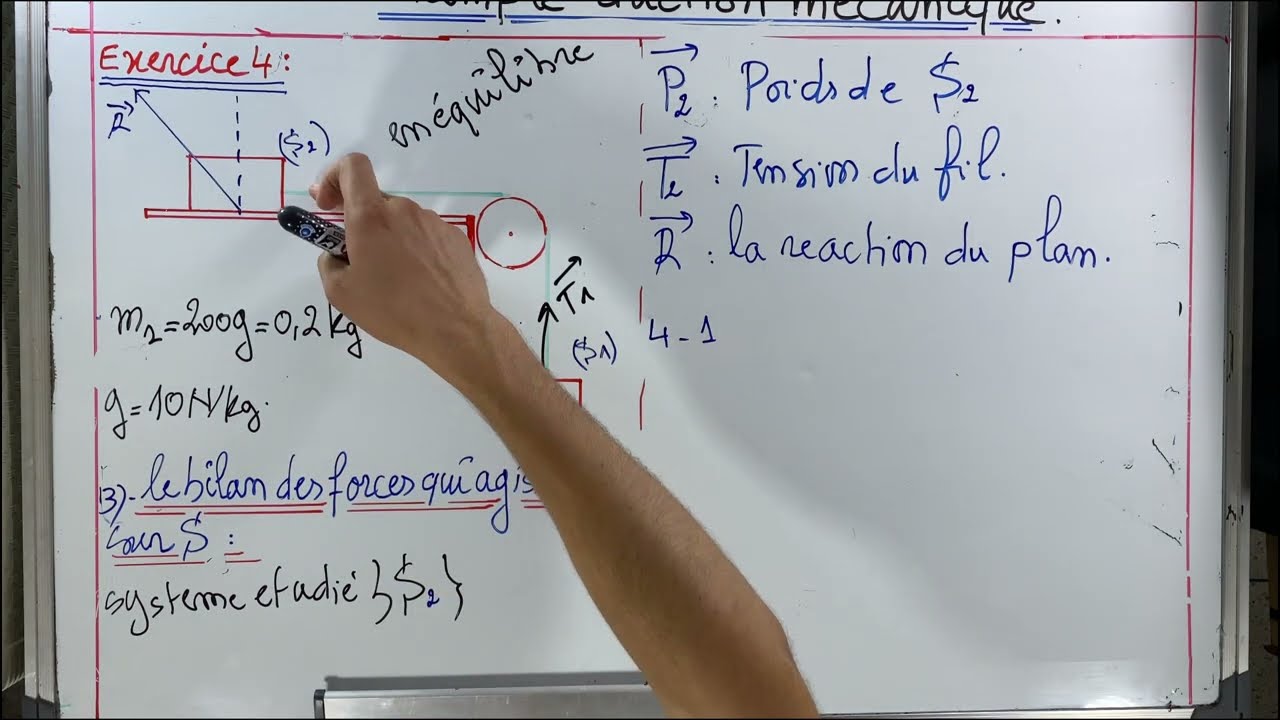 mécanique.
Exercice 4 :
en équilibre
R
(S2)
T1
(S1)
m2 = 200g = 0,2 kg
g = 10 N/kg.
3)- le bilan des forces qui agis
sur S :
systeme etudié }S2}
P2 : Poids de S2
T2 : Tension du fil.
R : la reaction du plan.
4 - 1